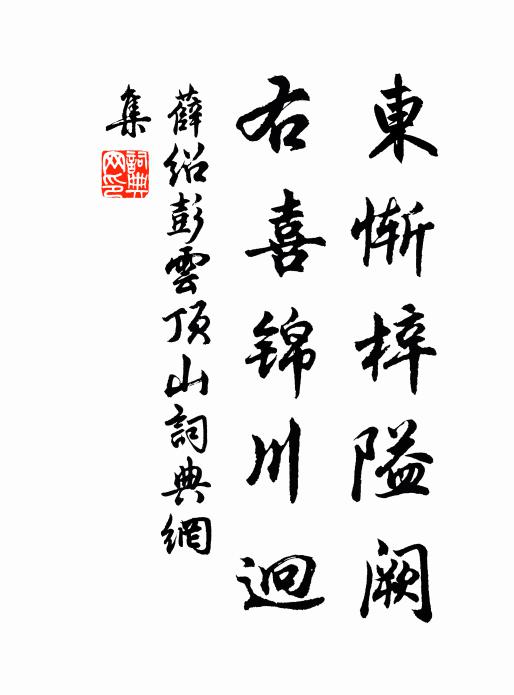 東慚梓隘阙
右喜锦川迴
薛绍彭雲顶山詞典網
集
詞典網印